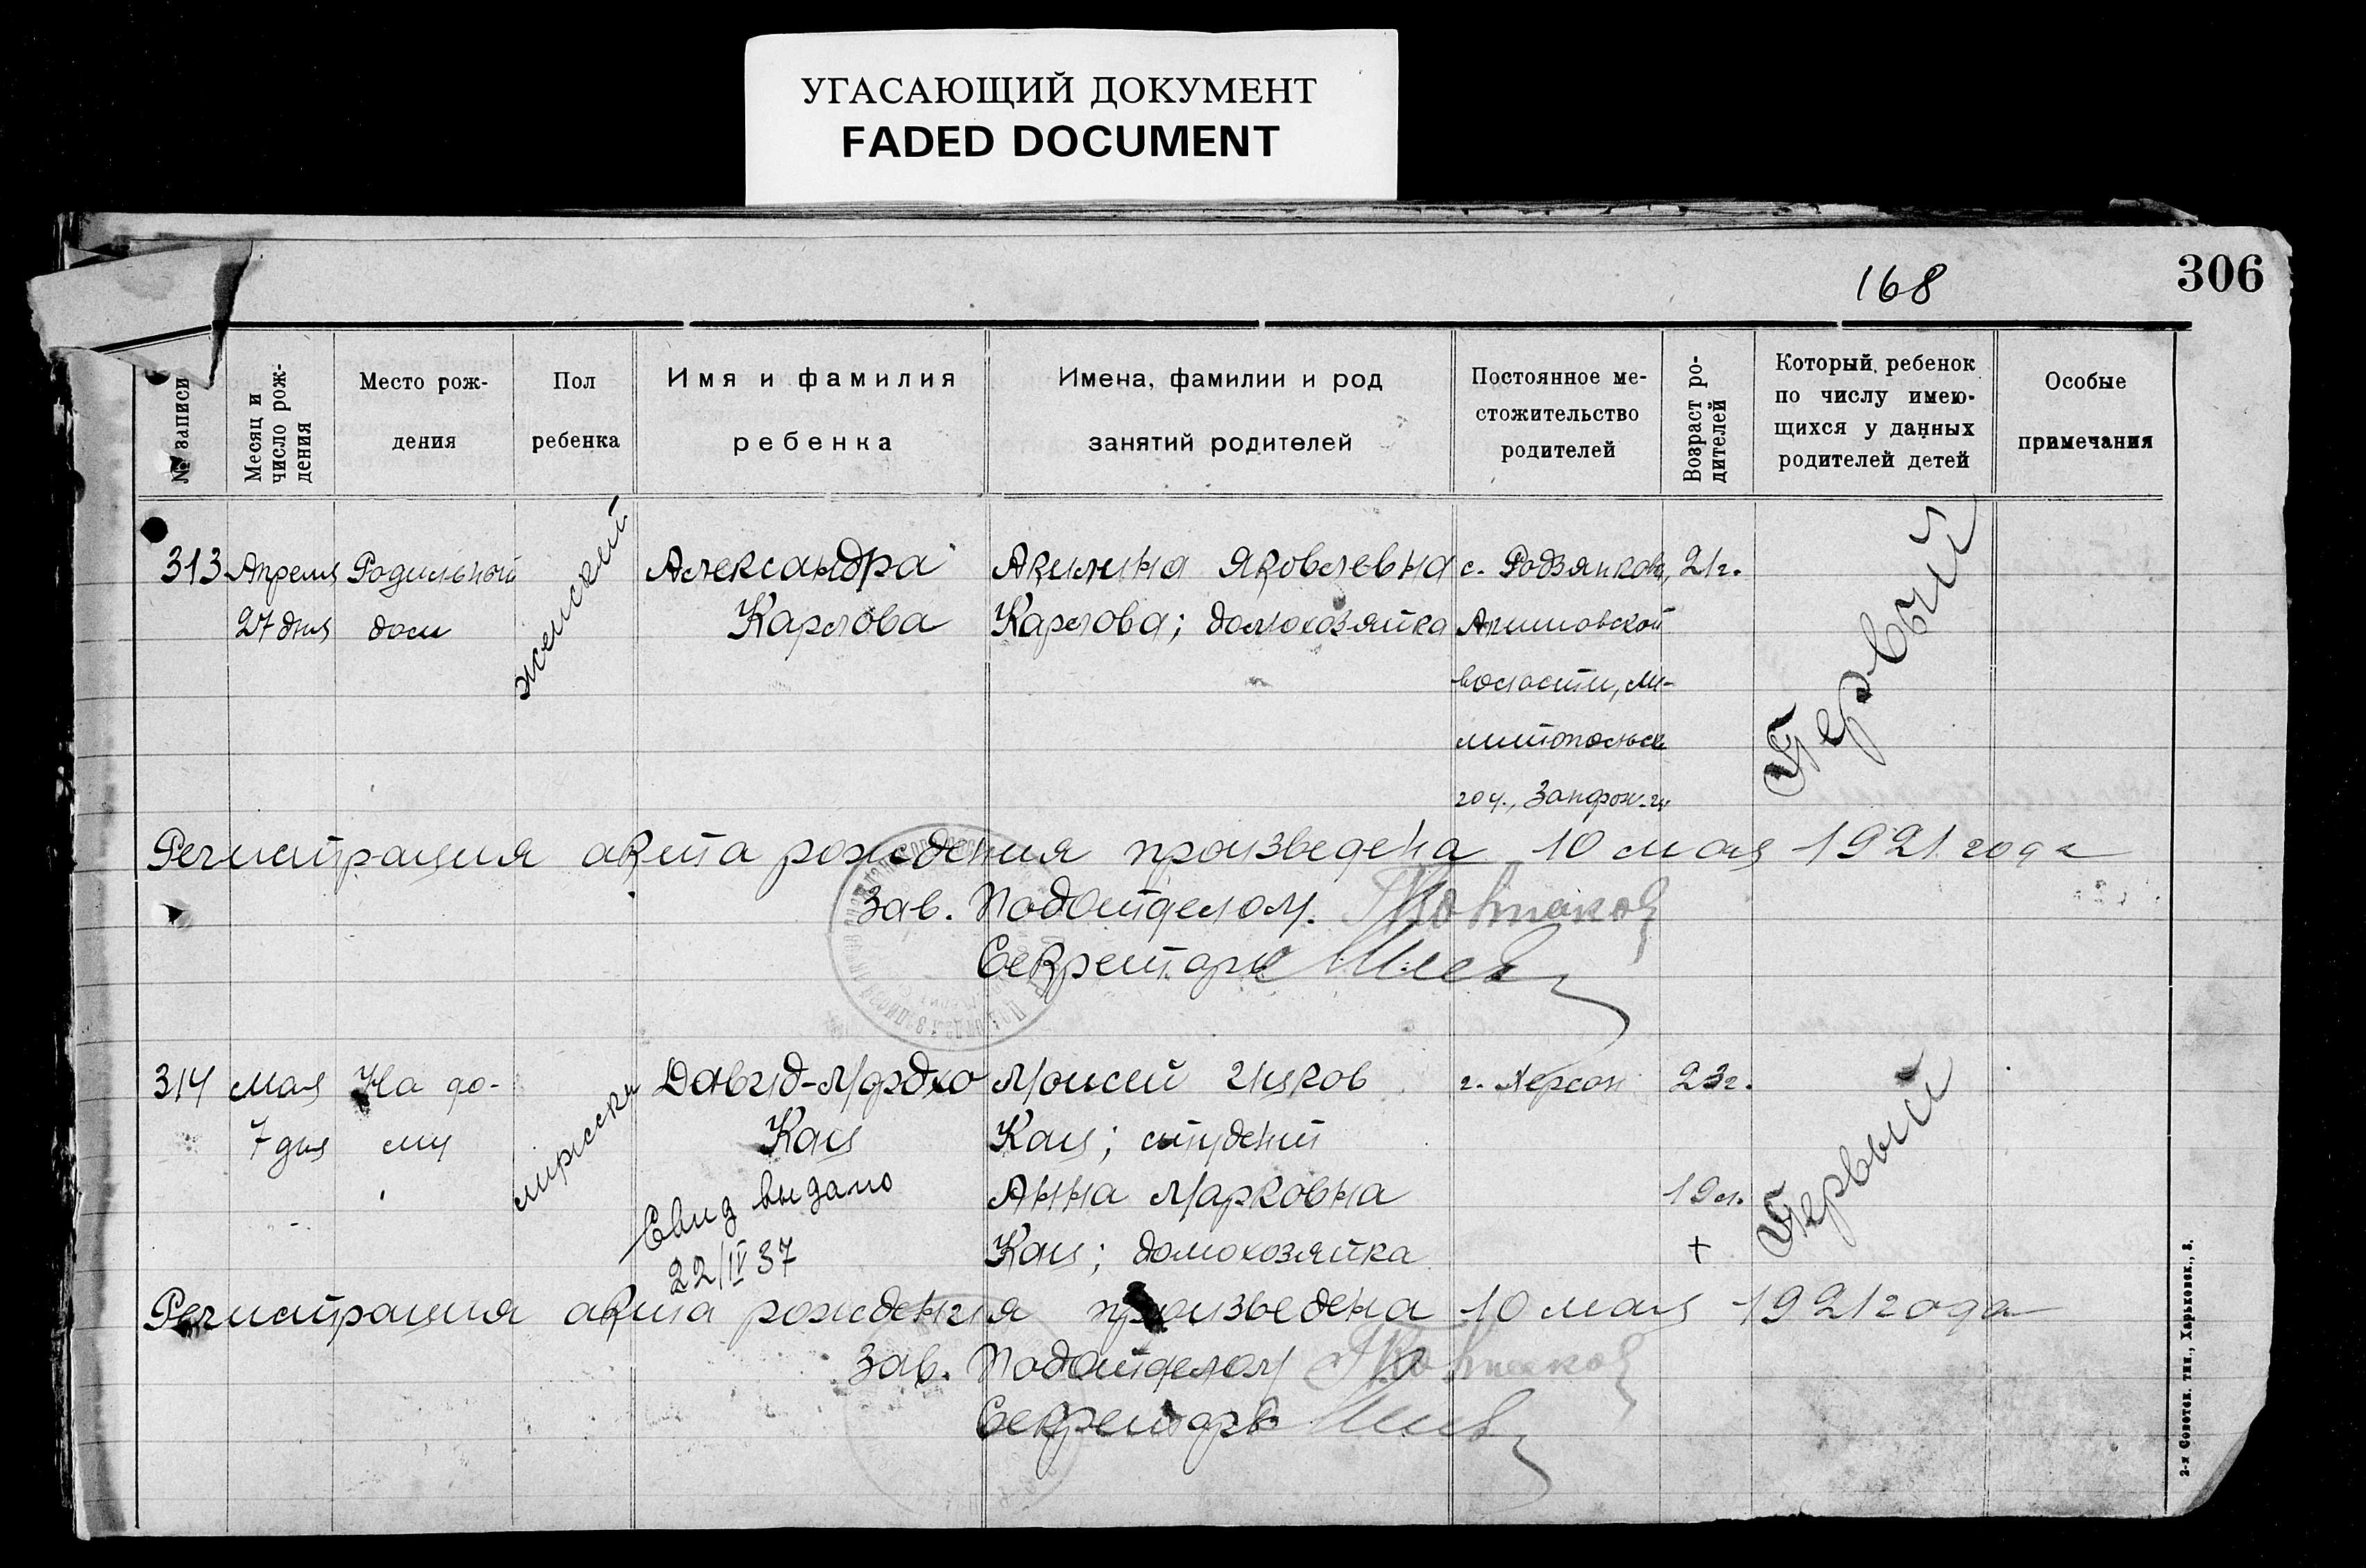 УГАСАЮЩИЙ ДОКУМЕНТ
FADED DOCUMENT
168
306
№ записи
Месяц и
число рож-
дения
Место рож-
дения
Пол
ребенка
Имя и фамилия
ребенка
Имена, фамилии и род
занятий родителей
Постоянное ме-
стожительство
родителей
Возраст ро-
дителей
Который ребенок
по числу имею-
щихся у данных
родителей детей
Особые
примечания
313
Апреля
27 дня
Родильный
дом
женский
Александра
Карлова
Акилина Яковлевна
Карлова; домохозяйка
с. Родзянково,
Акимовской
волости, Ме-
литопольск
21г.
Первый
Регистрация акта рождения произведена 10 мая 1921 года
Зав. Подотделом.
Секретарь
314
Мая
7 дня
На до-
му
мужской
Давид-Мордхо
Кац
Свид выдано
22/IV 37
Моисей Ицков
Кац; студент
Анна Марковна
Кац; домохозяйка
г. Херсон
23г.
19л.
+
Первый
Регистрация акта рождения произведена 10 мая 1921 года
Зав. Подотделом
Секретарь
2-я Советск. тип., Харьковск., 8.